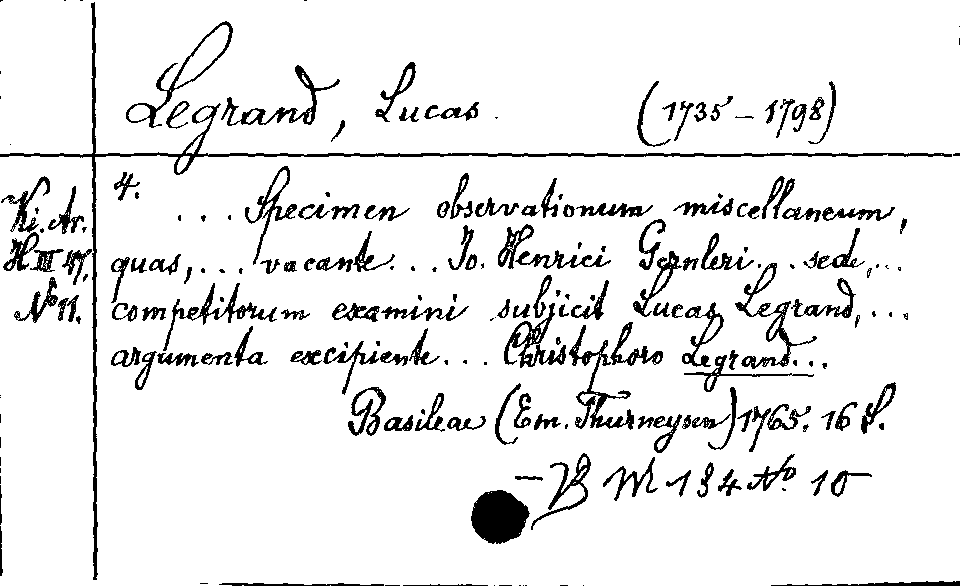 Legrand, Lucas. (1735-1798)
Ki. Ar. H III 47. No 11.
4. ... Specimen observationum miscellaneum,
quas,... vacante... Jo. Henrici Gernleri... sede,...
competitorum examini subjicit Lucas Legrand,...
argumenta excipiente... Christophoro Legrand...
Basileae (Em. Thurneysen) 1765. 16 S.
No 10